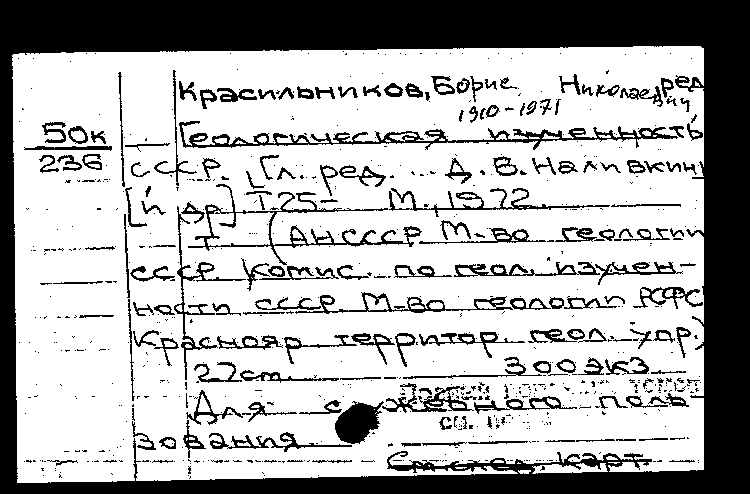 Красильников, Борис Николаевич, ред
1910-1971
50к
236
Геологическая изученность
СССР. [Гл. ред. ... Д. В. Наливкин
[и др] Т 25- М., 1972.
Т. (АНСССР М-во геологии
СССР. Комис. по геол. изучен-
ности СССР. М-во геологии РСФС
Краснояр территор. геол. упр.)
27 cm. 300 экз
Для служебного поль
зования.
См след. карт.